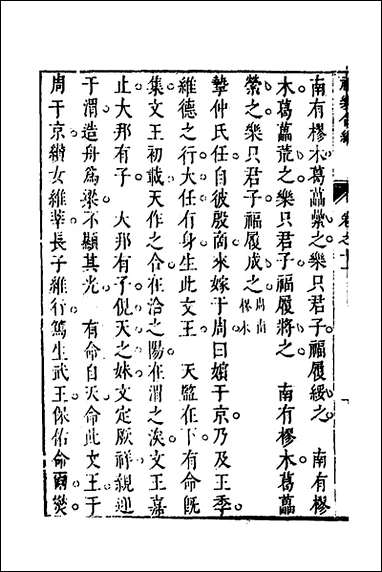 禮樂合編　卷之十
南有樛木葛藟纍之樂只君子福履綏之　南有樛
木葛藟荒之樂只君子福履將之　南有樛木葛藟
縈之樂只君子福履成之　周南
樛木
摯仲氏任自彼殷商來嫁于周曰嬪于京乃及王季
維德之行大任有身生此文王　天監在下有命既
集文王初載天作之合在洽之陽在渭之涘文王嘉
止大邦有子　大邦有子俔天之妹文定厥祥親迎
于渭造舟爲梁不顯其光　有命自天命此文王于
周于京纘女維莘長子維行篤生武王保佑命爾燮